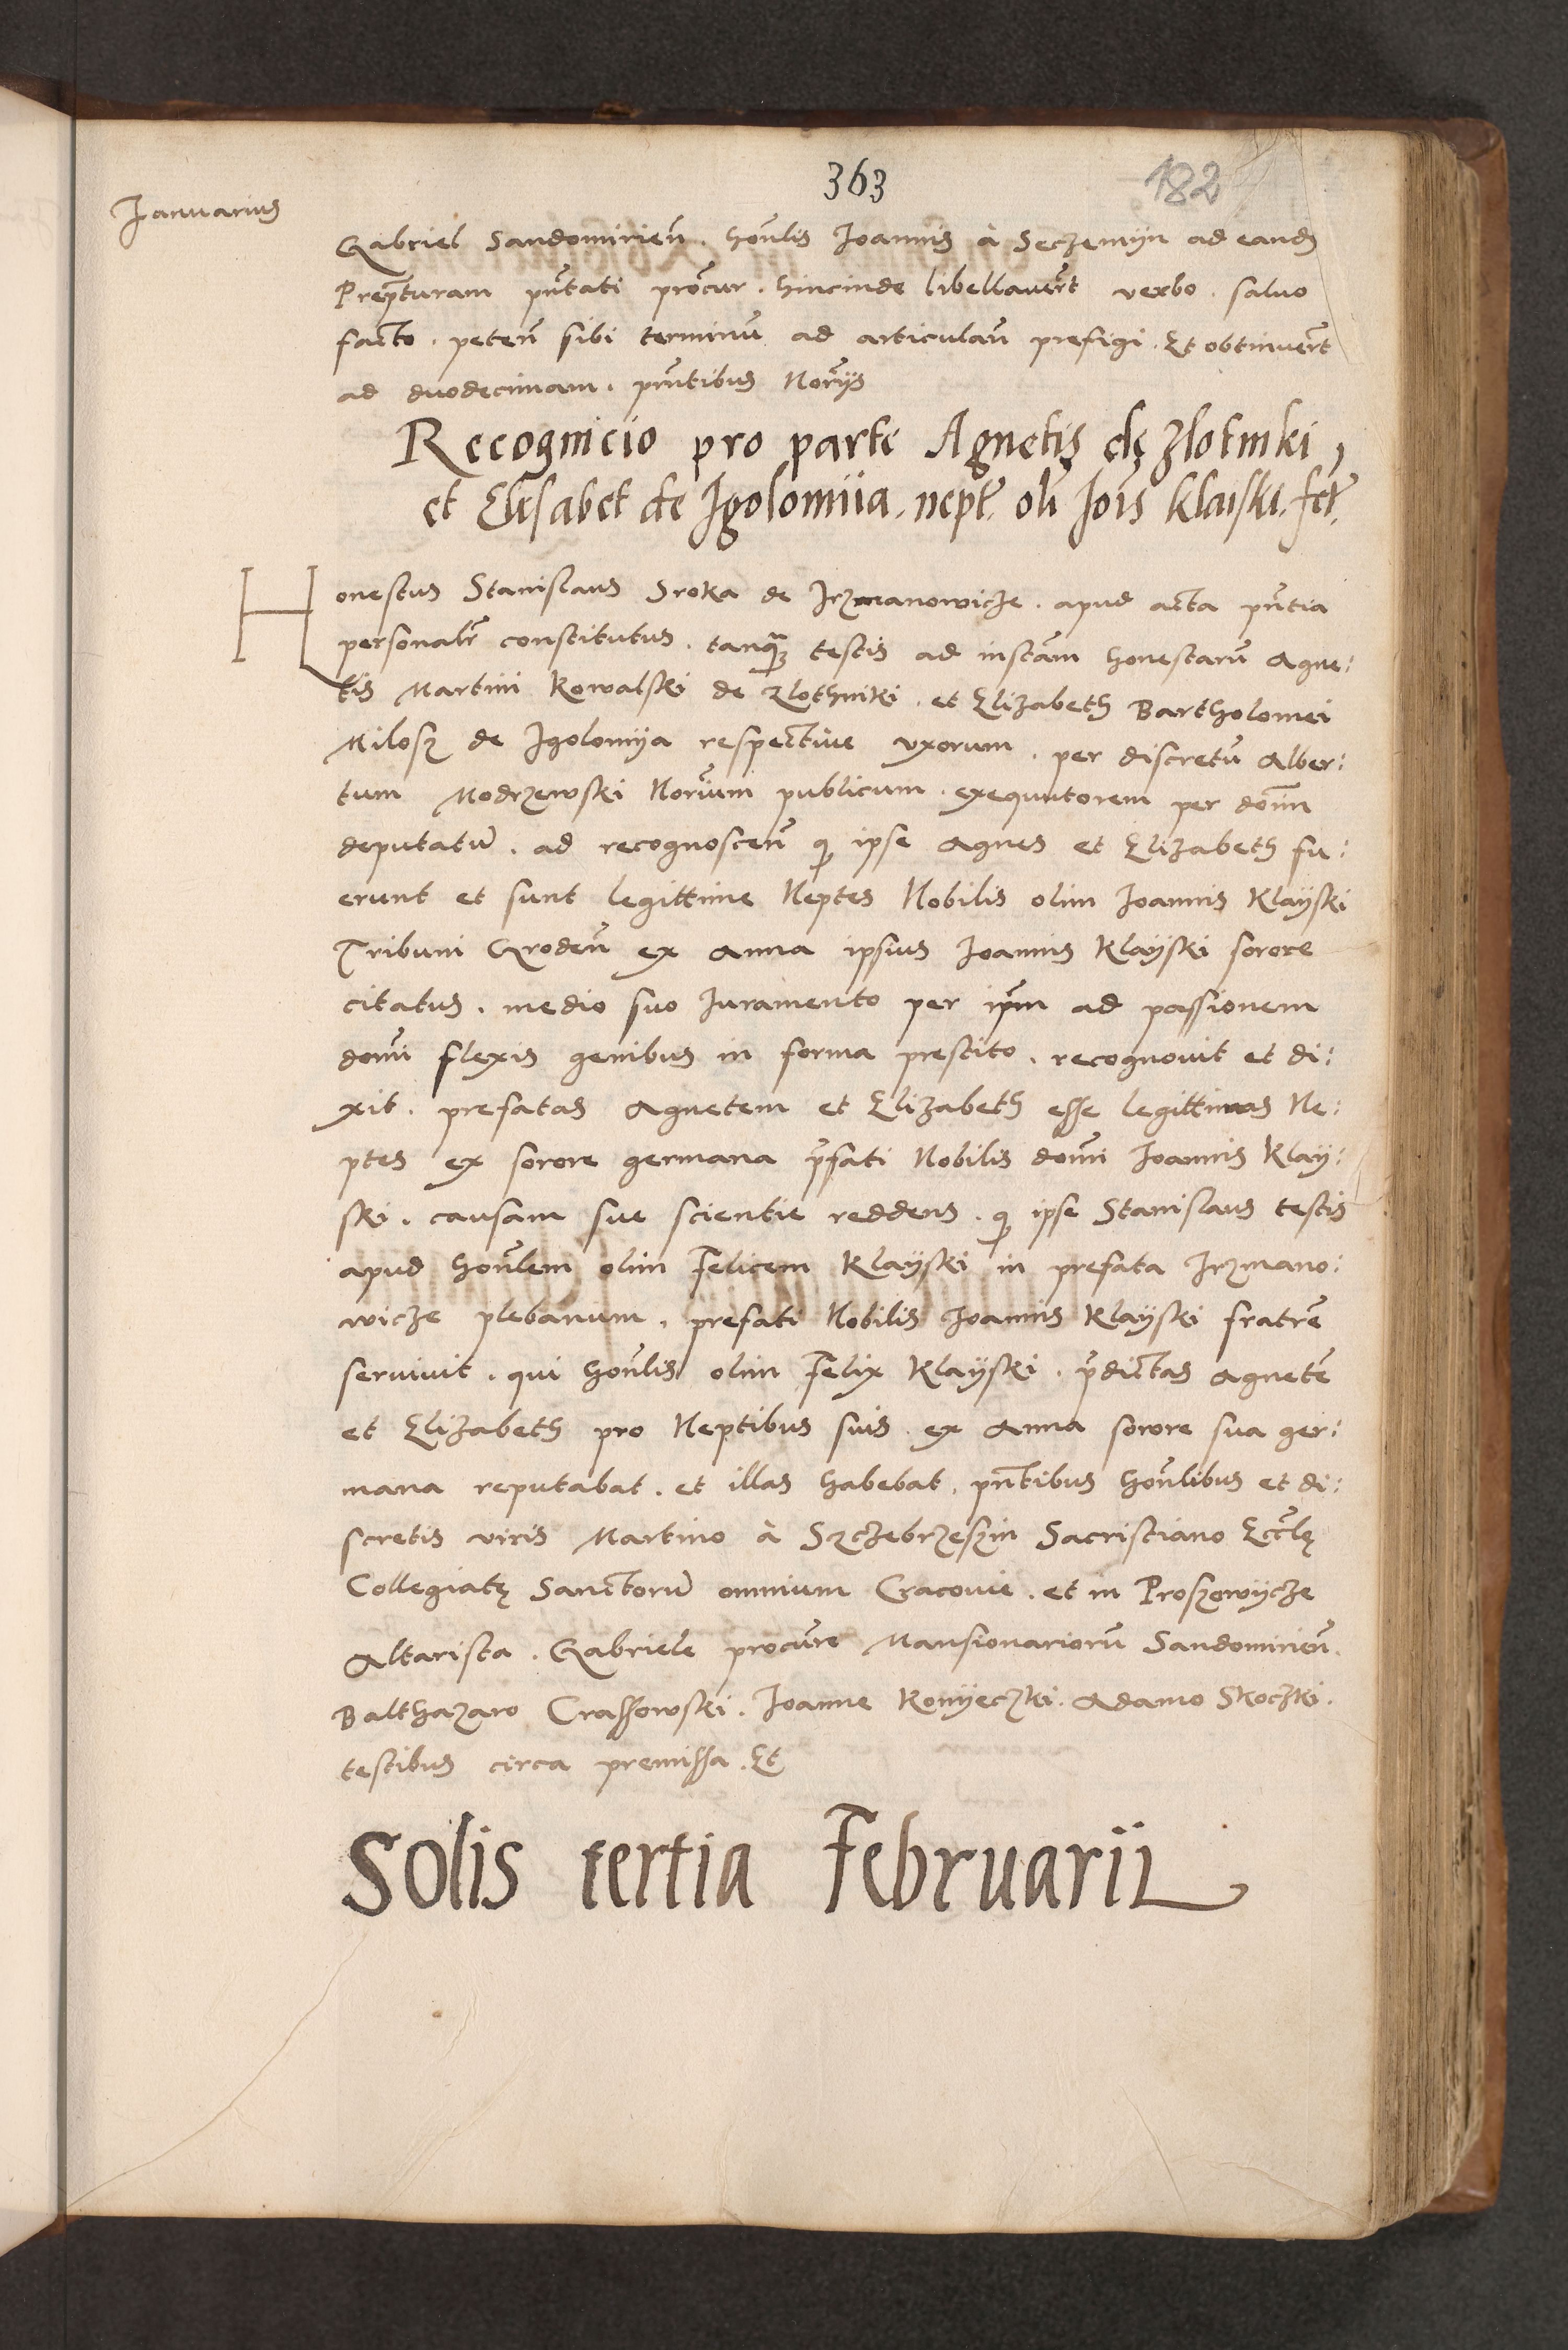 363
182
Januarius
Gabriel Sandomirien̄. hon̄lis Joannis à Seczemyn ad eandȝ
Prep̄turam pn̄tati procur̄. hincinde libellauer̄t verbo. saluo
facto. peten̄ sibi terminū ad articulan̄ prefigi. Et obtinuer̄t
ad duodecimam. pn̄tibus Nor̄ijs
Recognicio pro parte Agnetis de Zlotniki,
et Elisabet de Igolomiia. nept̄. oli Jois Klaiski. fct̄.
Honestus Stanislaus Sroka de Jrzmanowicze. apud acta pn̄tia
personalr̄ constitutus. tanqȝ testis ad instam̄ honestarū Agne:
tis Martini Kowalski de Zlothniki. et Elizabeth Bartholomei
Milosz de Igolomÿa respectiue vxorum. per discretū Alber:
tum Modrzewski Nor̄ium publicum. exequutorem per dom̄
deputatū. ad recognoscen̄ q̄ ipse Agnes et Elizabeth fu:
erunt et sunt legittime Neptes Nobilis olim Joannis Klaÿski
Tribuni Groden̄ ex Anna ipsius Joannis Klaÿski sorore
citatus. medio suo Juramento per ipm̄ ad passionem
domī flexis genibus in forma prestito. recognouit et di:
xit. prefatas Agnetem et Elizabeth esse legittimas Ne:
ptes ex sorore germana p̄fati Nobilis domī Joannis Klaÿ:
ski. causam sue scientie reddens. q̄ ipse Stanislaus testis
apud hon̄lem olim Felicem Klaÿski in prefata Jrzmano:
wicze plebanum. prefati Nobilis Joannis Klaÿski fratrē
seruiuit. qui hon̄lis olim Felix Klaÿski. p̄dictas Agnetē
et Elizabeth pro Neptibus suis ex Anna sorore sua ger:
mana reputabat. et illas habebat. pn̄tibus hon̄libus et di:
scretis viris Martino à Szczebrzeszin Sacristiano Eccl̄ę
Collegiatę Sanctorū omnium Cracouie. et in Proszowÿcze
Altarista. Gabriele procur̄e Mansionariorū Sandomirien̄.
Balthazaro Crassowski. Joanne Konÿeczki. Adamo Skoczki.
testibus circa premissa. Et
Solis tertia Februarii